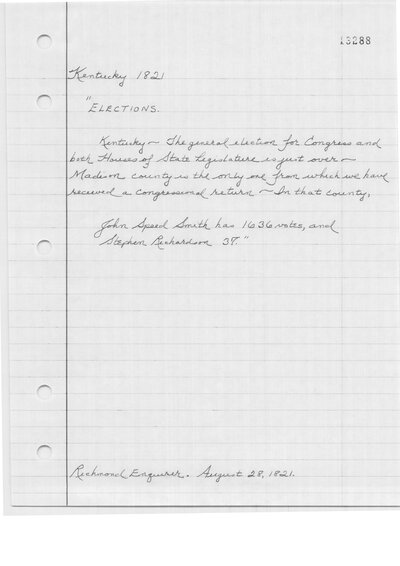 13288
Kentucky 1821
"ELECTIONS.
Kentucky~ The general election for Congress and
both Houses of State Legislature is just over~
Madison county is the only one from which we have
received a congressional return ~ In that county,
John Speed Smith has 1636 votes, and
Stephen Richardson 37."
Richmond Enquirer. August 28, 1821.